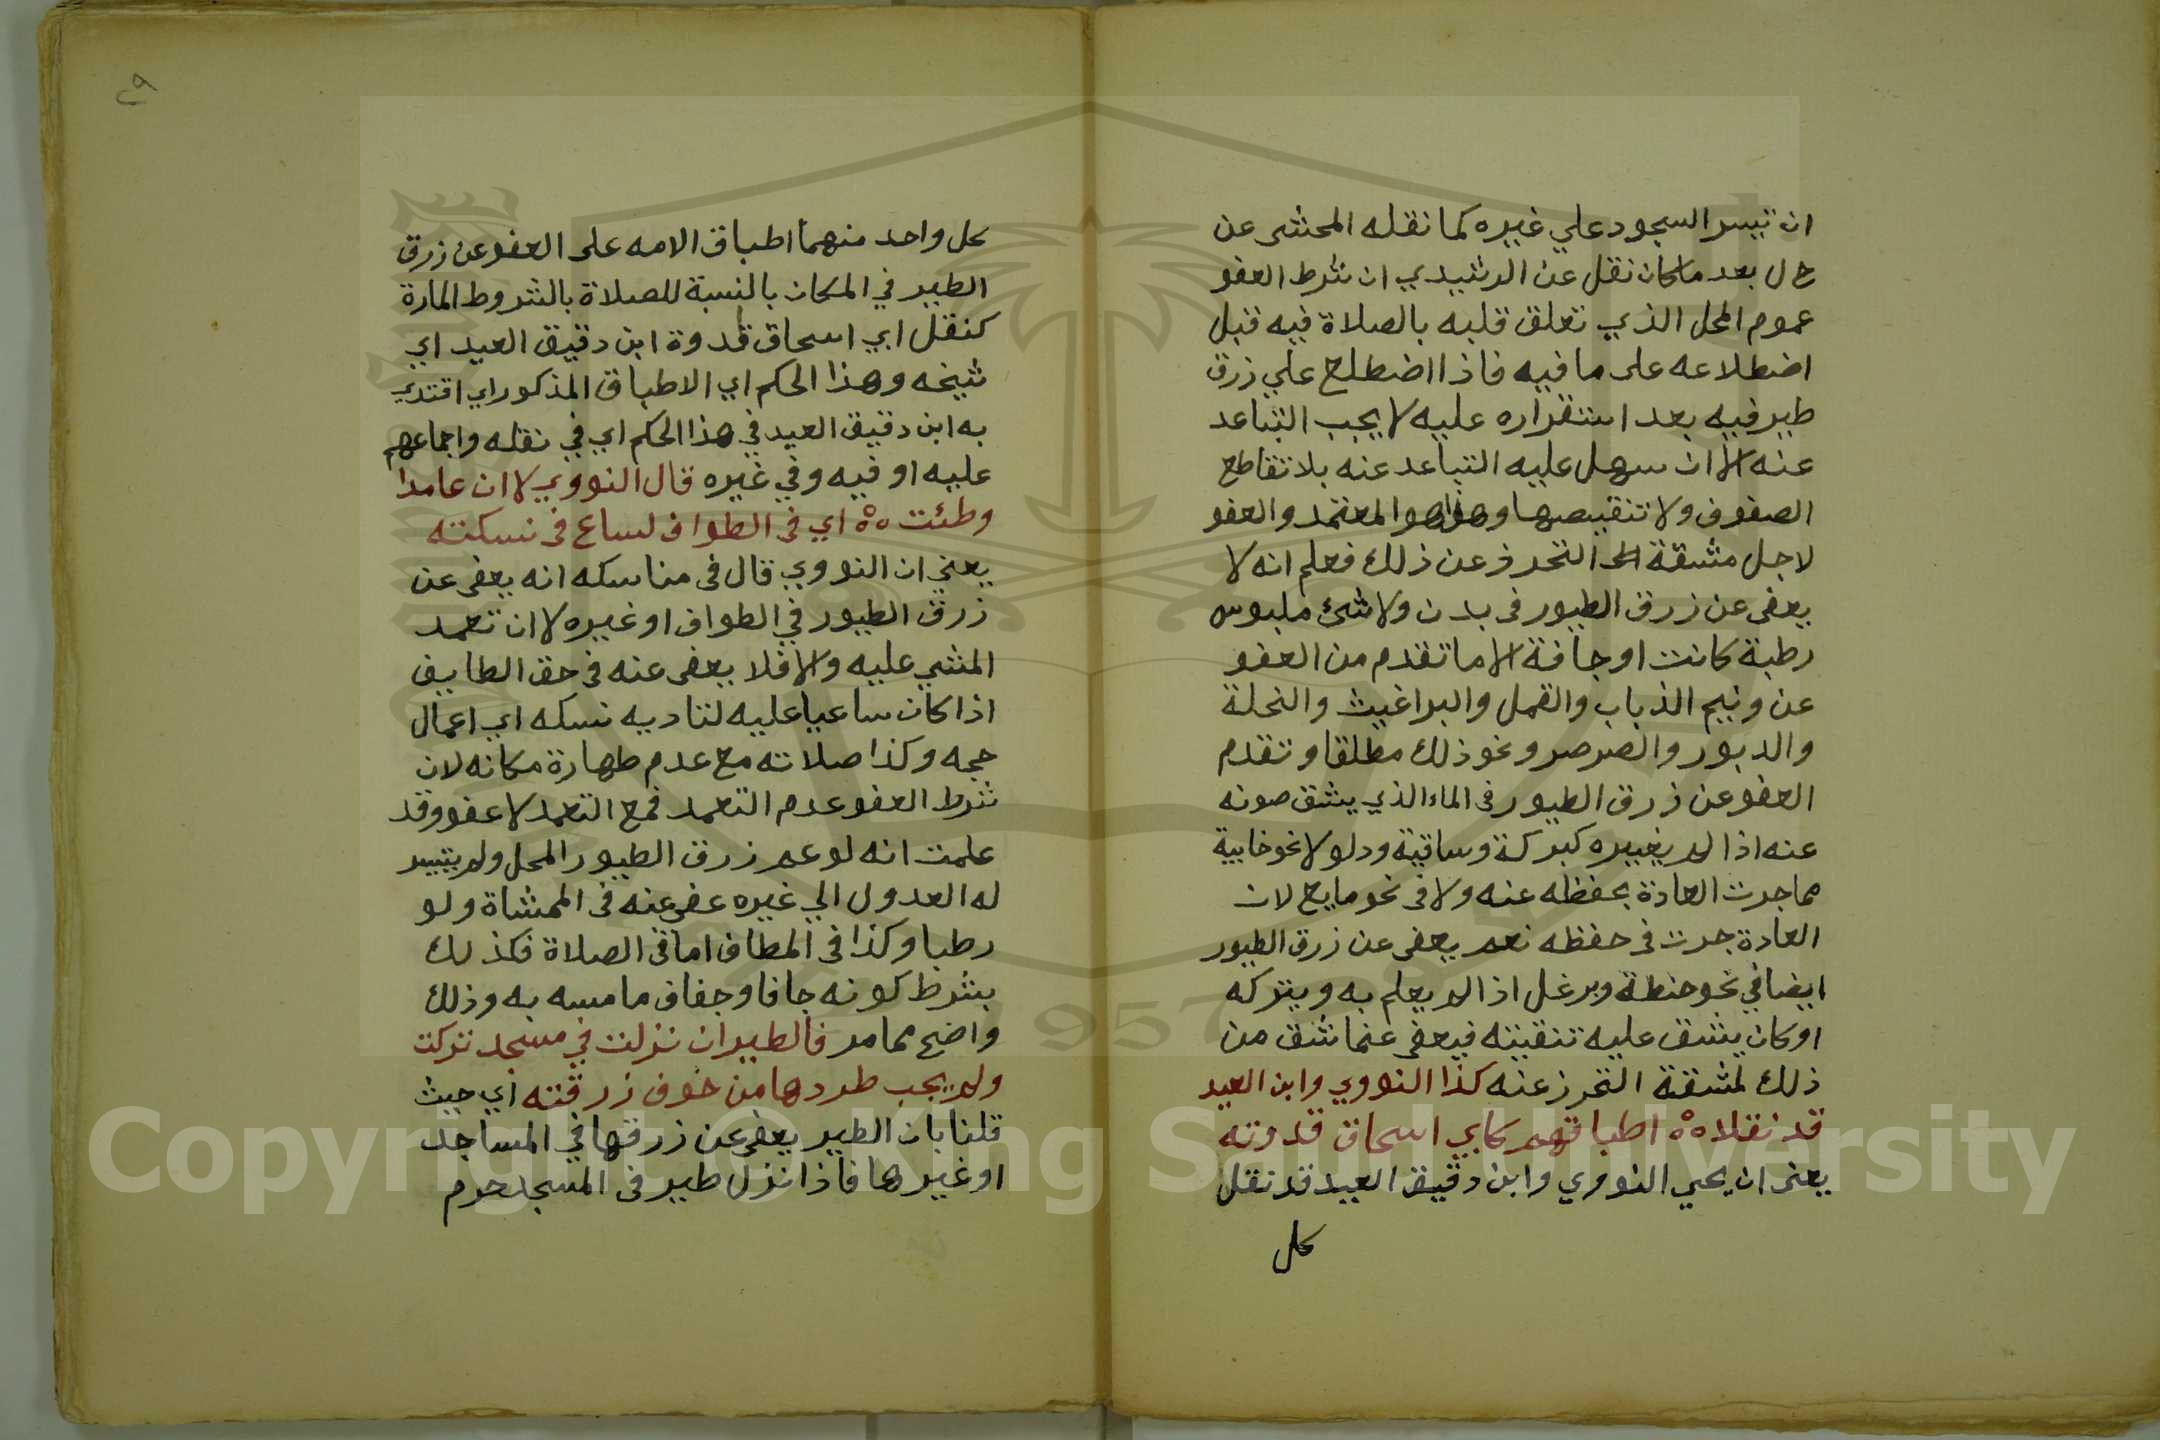 ان تيسر السجود علي غيره كما نقله المحشى عن
ح ل بعد ما كان نقل عن الرشيدي ان شرط العفو
عموم المحل الذي تعلق قلبه بالصلاة فيه قبل
اضطلاعه على ما فيه فاذا اضطلع علي زرق
طير فيه بعد استقراره عليه لا يجب التباعد
عنه الا ان سهل عليه التباعد عنه بلا تقاطع
الصفوف ولا تنقيصها وهذا هو المعتمد والعفو
لاجل مشقة التحرز عن ذلك فعلم انه لا
يعفى عن زرق الطيور فى بدن ولا شئ ملبوس
رطبة كانت او جافة الا ما تقدم من العفو
عن ونيم الذباب والقمل والبراغيث والنحلة
والدبور والصرصر ونحو ذلك مطلقا وتقدم
العفو عن زرق الطيور فى الماء الذي يشق صونه
عنه اذا لم يغيره كبركة وساقية ودلو لا نحو خابية
مما جرت العادة بحفظه عنه ولا فى نحو مايع لان
العادة جرت فى حفظه نعم يعفى عن زرق الطيور
ايضا في نحو حنطة وبرغل اذا لم يعلم به ويتركه
او كان يشق عليه تنقيته فيعفى عنما شق من
ذلك لمشقة التحرز عنه كذا النووي وابن العيد
قد نقلا ه ه اطباقهم كابي اسحاق قدوته
يعنى ان يحي النووي وابن دقيق العيد قد نقل
كل
٢٩
كل واحد منهما اطباق الامه على العفو عن زرق
الطير في المكان بالنسبة للصلاة بالشروط المارة
كنقل ابي اسحاق قدوة ابن دقيق العيد اي
شيخه وهذا الحكم اي الاطباق المذكور اي اقتدي
به ابن دقيق العيد في هذا الحكم اي في نقله واجماعهم
عليه او فيه وفي غيره قال النووي لا ان عامدا
وطئت ه ه اي فى الطواف لساع فى نسكته
يعني ان النووي قال فى مناسكه انه يعفى عن
زرق الطيور في الطواف او غيره لا ان تعمد
المشي عليه والا فلا يعفى عنه فى حق الطايف
اذا كان ساعيا عليه لتاديه نسكه اي اعمال
حجه وكذا صلاته مع عدم طهارة مكانه لان
شرط العفو عدم التعمد فمع التعمد لا عفو وقد
علمت انه لو عم زرق الطيور المحل ولم يتيسر
له العدول الي غيره عفى عنه فى الممشاة ولو
رطبا وكذا فى المطاف اما فى الصلاة فكذلك
بشرط كونه جافا وجفاف ما مسه به وذلك
واضح مما مر فالطير ان نزلت في مسجد تركت
ولم يجب طردها من خوف زرقته اي حيث
قلنا بان الطير يعفى عن زرقها في المساجد
او غيرها فاذا نزل طير فى المسجد حرم
Copyright © King Saud University
1957